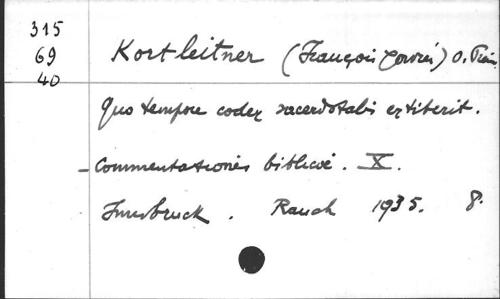 315
69
40
Kortleitner (François Xavier) O. Præm.
Quo tempore codex sacerdotalis extiterit.
- Commentationes biblicæ. X.
Innsbruck. Rauch 1935. 8.